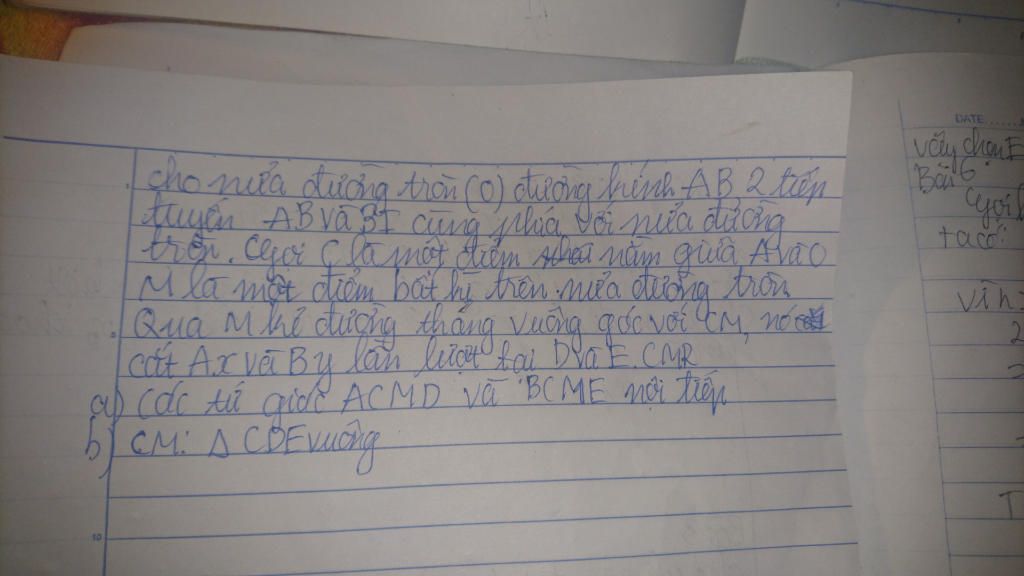 cho nửa đường tròn (O) đường kính AB 2 tiếp
tuyến AB và BI cùng phía với nửa đường
tròn. Gọi C là một điểm nằm giữa A và O
M là một điểm bất kỳ trên nửa đường tròn
Qua M kẻ đường thẳng vuông góc với CM, nó
cắt Ax và By lần lượt tại D và E. CMR
a) Các tứ giác ACMD và BCME nội tiếp
b) CM: Δ CDE vuông
10
DATE......
vậy chọn E
Bài 6
Gọi
ta có:
vìn:
2
2
T